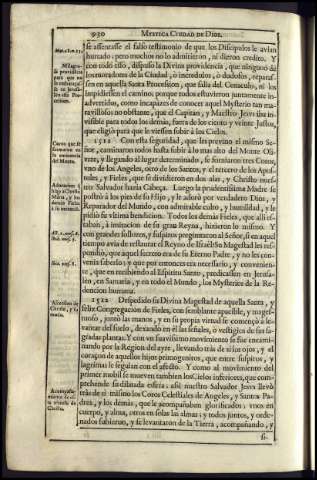 930 MYSTICA CIUDAD DE DIOS.
se assentasse el falso testimonio de que los Discipulos le avian
hurtado; pero muchos no lo admitieron, ni dieron credito. Y
con todo esso, dispuso la Divina providencia, que ninguno de
los moradores de la Ciudad, ò incredulos, ò dudosos, reparas-
sen en aquella Santa Procession, que salia del Cenaculo, ni los
impidiessen el camino: porque todos estuvieron justamente in-
advertidos, como incapaces de conocer aquel Mysterio tan ma-
ravilloso: no obstante, que el Capitan, y Maestro JESUS iba in-
visible para todos los demàs, fuera de los ciento y veinte Justos,
que eligió para que le viessen subir à los Cielos.
1511 Con esta seguridad, que les previno el mismo Se-
ñor, caminaron todos hasta subir à lo mas alto del Monte Oli-
vete, y llegando al lugar determinado, se formaron tres Coros,
vno de los Angeles, otro de los Santos, y el tercero de los Apos-
toles, y Fieles, que se dividieron en dos alas, y Christo nuestro
Salvador hazia Cabeça. Luego la prudentissima Madre se
postrò à los pies de su Hijo, y le adorò por verdadero Dios, y
Reparador del Mundo, con admirable culto, y humildad, y le
pidiò su vltima bendicion. Todos los demàs Fieles, que alli es-
taban, à imitacion de su gran Reyna, hizieron lo mismo. Y
con grandes sollozos, y suspiros preguntaron al Señor, si en aquel
tiempo avia de restaurar el Reyno de Israèl? Su Magestad les res-
pondiò, que aquel secreto era de su Eterno Padre, y no les con-
venia saberlo; y que por entonces era necessario, y convenien-
te, que en recibiendo al Espiritu Santo, predicassen en Jerusa-
lèn, en Samaria, y en todo el Mundo, los Mysterios de la Re-
dencion humana.
1512 Despedido su Divina Magestad de aquella Santa, y
feliz Congregacion de Fieles, con semblante apacible, y mages-
tuoso, juntò las manos, y en su propia virtud se començò à le-
vantar del suelo, dexando en èl las señales, ò vestigios de sus sa-
gradas plantas. Y con vn suavissimo movimiento se fue encami-
nando por la Region del ayre, llevando tràs de sì los ojos, y el
coraçon de aquellos hijos primogenitos, que entre suspiros, y
lagrimas le seguian con el afecto. Y como al movimiento del
primer mobil se mueven tambien los Cielos inferiores, que com-
prehende su dilatada esfera: assi nuestro Salvador JESUS llevò
tràs de sì mismo los Coros Celestiales de Angeles, y Santos Pa-
dres, y los demàs, que le acompañaban glorificados; vnos en
cuerpo, y alma, otros en solas las almas; y todos juntos, y orde-
nados subieron, y se levantaron de la Tierra, acompañando, y
si-